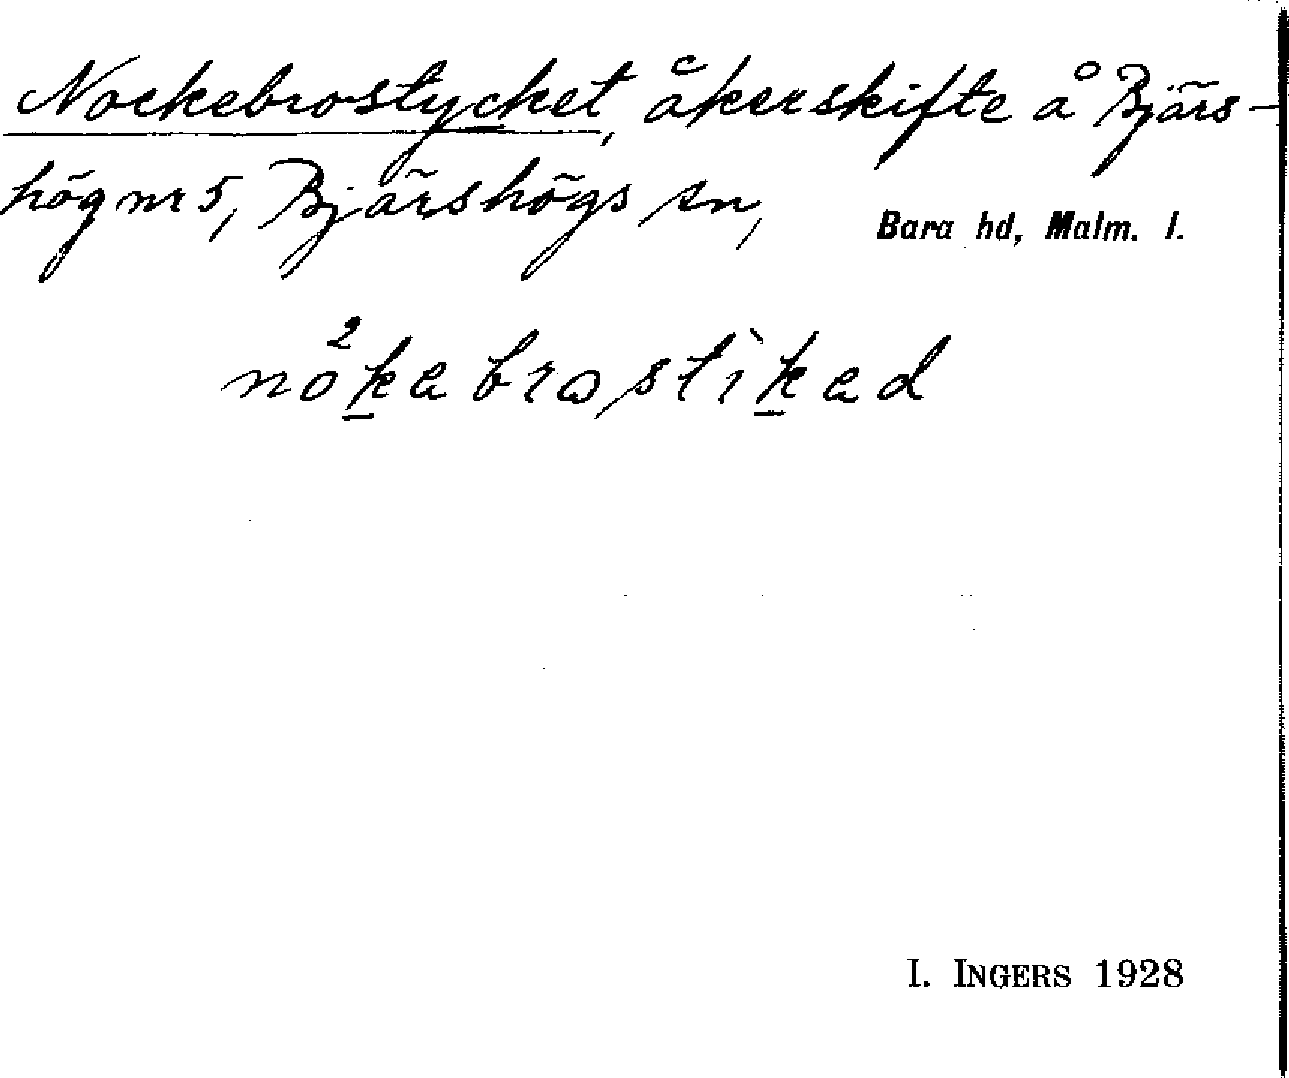 Nockebrostycket, åkerskifte å Bjärs-
hög nr 5, Bjärshögs sn, Bara hd, Malm. l.
no²kabrostìkad
I. INGERS 1928